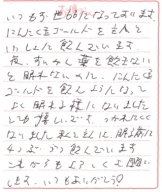 いつもお世話になっております
にんにくゴールドを主人と
いっしょに飲んでいます
夜、すいみん薬を飲まない
と眠れないのに、にんにく
ゴールドを飲むようになって
よく眠れる様になりました
とても嬉しいです。つかれにくく
なりました 私と主人は、眠る前に
4つぶずつ飲んでいます
これからもよろしくお願い
します。いつもありがとう